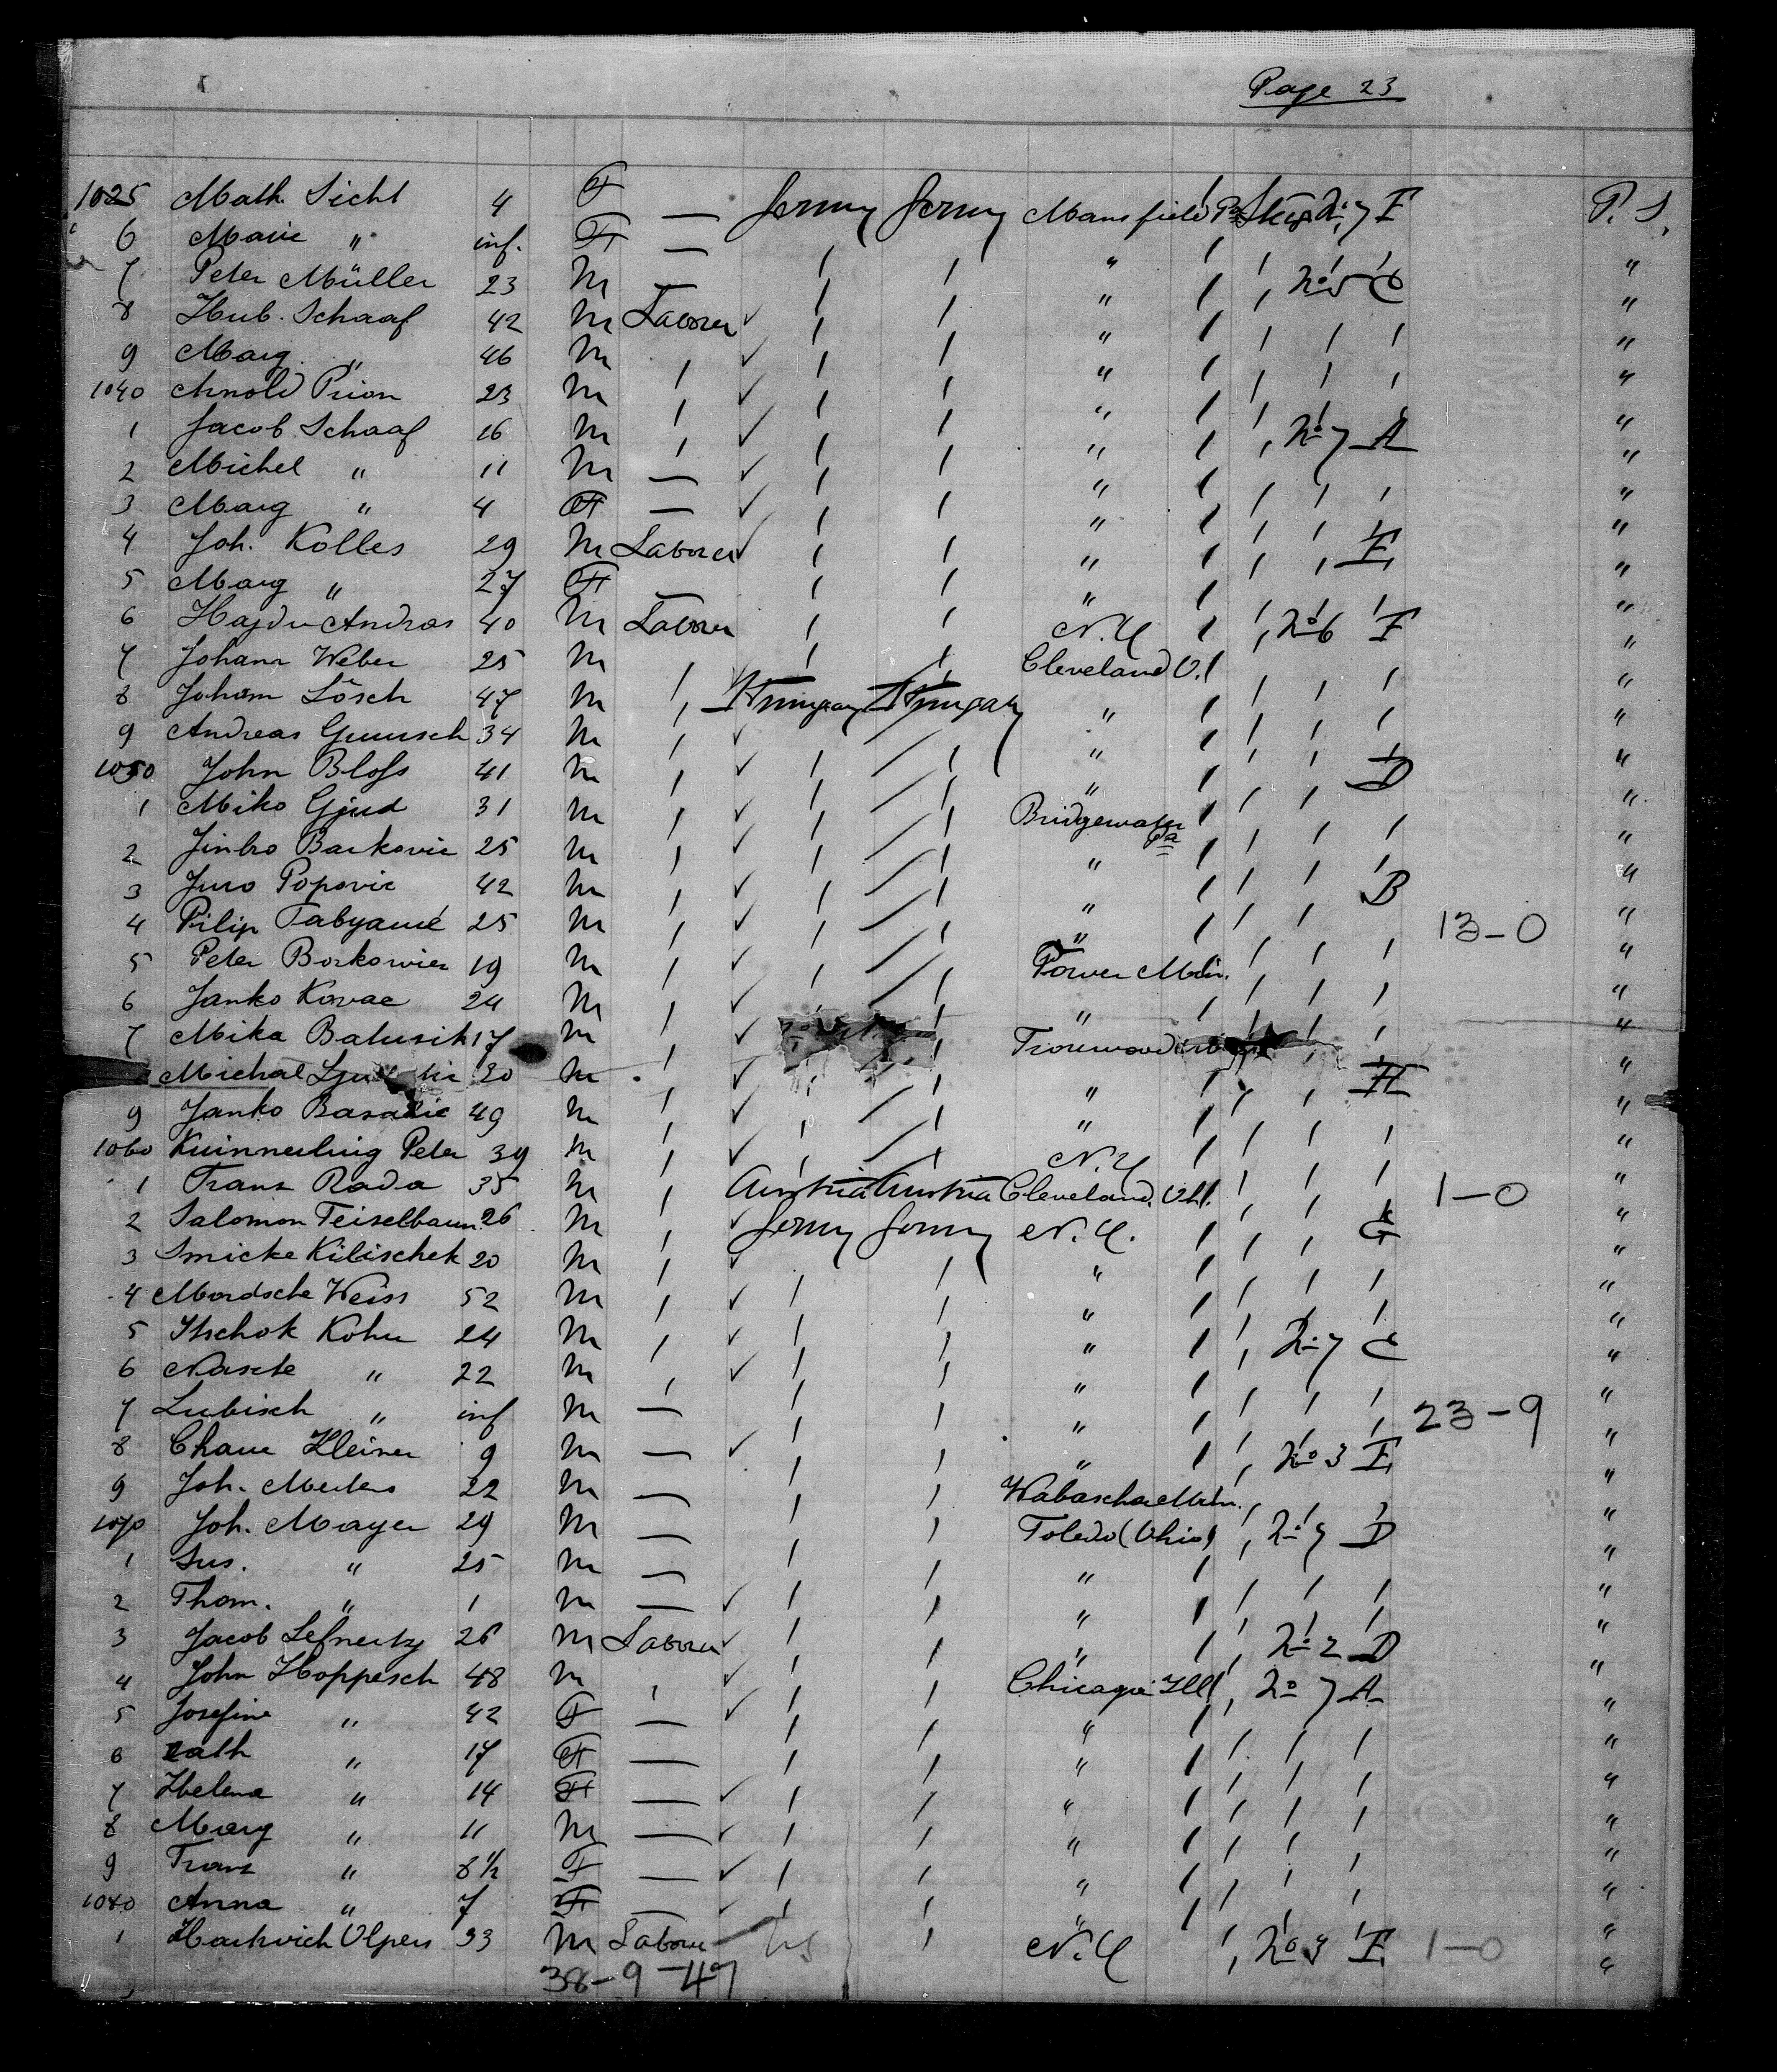 Page 23
1025 Math. Sicht 4 F — Germy Germy Mansfield Pa Steig No 7 E P. S.
6 Marie " inf. F — " "
7 Peter Müller 23 M — " No 5 C "
8 Hub. Schaaf 42 M Laborer ✓ " "
9 Marg. " 46 M ✓ " "
1040 Arnold Prion 23 M ✓ " "
1 Jacob Schaaf 16 M ✓ " No 7 A "
2 Michel " 11 M — ✓ " "
3 Marg " 4 F — ✓ " "
4 Joh. Kolles 29 M Laborer ✓ " E "
5 Marg " 27 F — " "
6 Hajdu Andras 40 M Laborer N.Y No 6 F "
7 Johann Weber 25 M Cleveland O. "
8 Johann Lösch 47 M Hungary Hungary " "
9 Andreas 34 M ✓ " "
1050 John Bloss 41 M ✓ " D "
1 Miko Gjud 31 M ✓ Bridgewater Pa "
2 Janko Barkovic 25 M ✓ " "
3 Juro Popovic 42 M ✓ " B "
4 Filip 25 M ✓ " 13-0 "
5 Peter 19 M ✓ Tower Min. "
6 Janko Kovac 24 M ✓ " "
7 Mika Balusik 17 M ✓ "
Michal 20 M ✓ " H "
9 Janko Basaric 49 M ✓ " "
1060 Peter 39 M ✓ N.Y "
1 Franz Rada 35 M Austria Austria Cleveland, Oh. 1-0 "
2 Salomon Teiselbaum 26 M ✓ Germy Germy N.Y. G "
3 Smicke Kilischek 20 M ✓ " "
4 Mordsche Weiss 52 M ✓ " "
5 Itschok Kohn 24 M ✓ " No 7 C "
6 Nasche " 22 M ✓ " "
7 Lubisch " inf M — " 23-9 "
8 Chane Kleiner 9 M — ✓ " No 3 E "
9 Joh. Merters 22 M — Wabascha Min. "
1070 Joh. Mayer 29 M — Toledo (Ohio) No 7 D "
1 Sus. " 25 M — " "
2 Thom. " 1 M — ✓ " "
3 Jacob 26 M Laborer ✓ " No 2 D "
4 John Hoppesch 48 M ✓ Chicago Ill No 7 A "
5 Josefine " 42 F — ✓ " "
6 Cath " 17 F — " "
7 Helena " 14 F — ✓ " "
8 Marg " 11 M — ✓ " "
9 Franz " 8½ F — ✓ " "
1080 Anna " 7 F — ✓ " "
1 Olpers 33 M Laborer US N.Y No 3 E 1-0 "
38-9-47